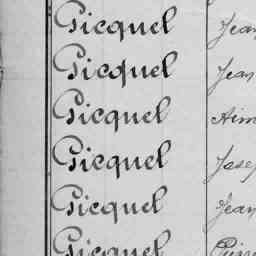 Picquel Jean
Picquel Jean
Picquel Aim
Picquel Josep
Picquel Jean
Picquel